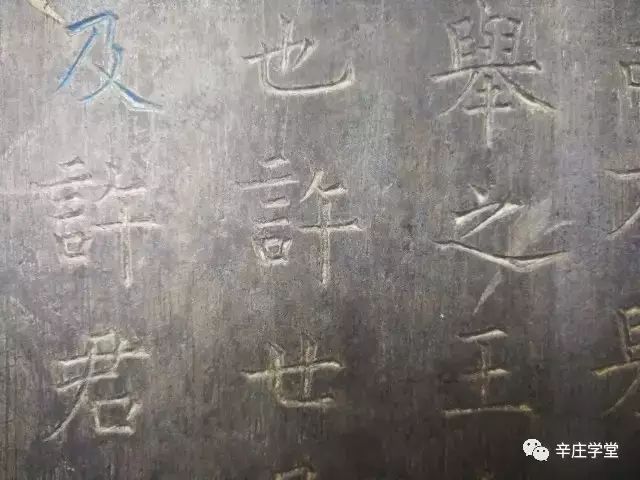 舉之王
也許廿
及許君
辛庄学堂